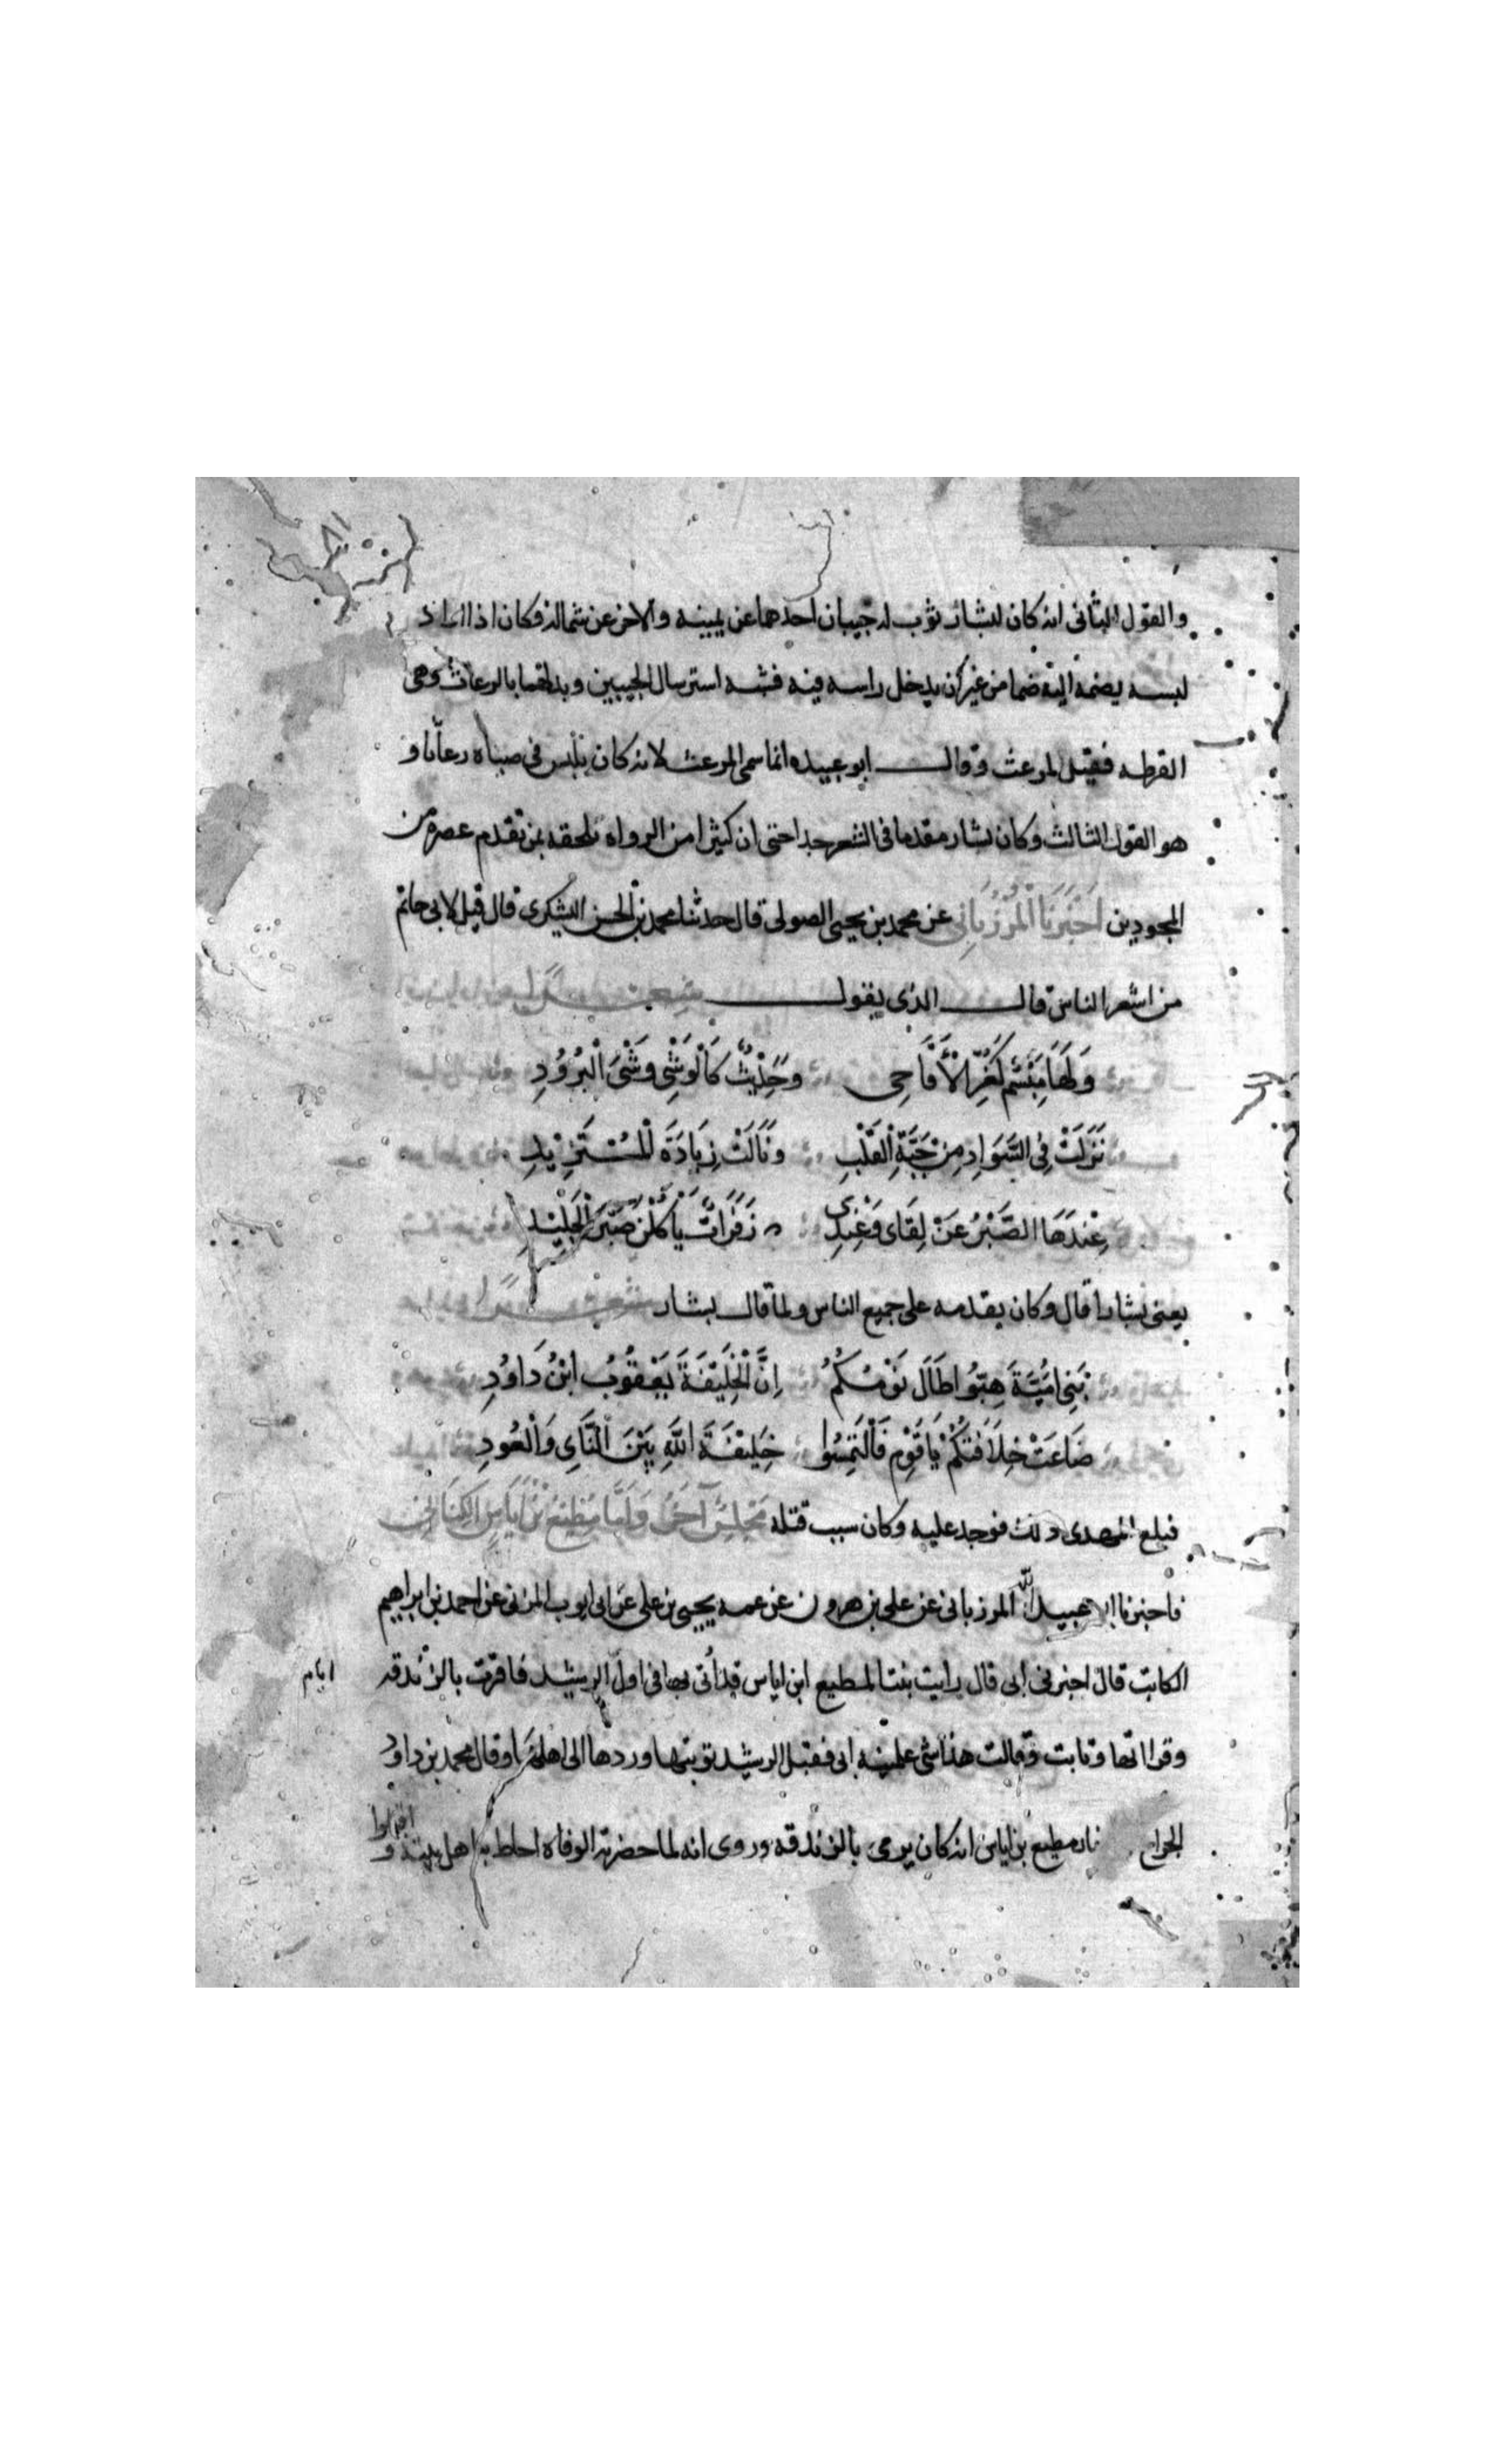 والقول الثانى انه كان لبشار ثوب له جيبان احدهما عن يمينه والاخر عن شماله فكان اذا اراد
لبسه يضمه اليه ضما من غير ان يدخل راسه فيه فشبه استرسال الجيبين وتدلهما بالرعاث وهى
القرطه فقيل المرعث وقال ابو عبيده انما سمى المرعث لانه كان يلبس فى صباه رعاثا و
هو القول الثالث وكان بشار مقدما فى الشعر جدا حتى ان كثيرا من الرواه يلحقه بمن تقدم عصره من
المجودين اَخْبَرَنَا الْمَرْزُبَانِى عن محمد بن يحيى الصولى قال حدثنا محمد بن الحسن اليشكرى قال قيل لابى حاتم
من اشعر الناس قال الذى يقول
وَلَهَا مَبْسَمٌ كَغُرِّ الْأَقَاحِى وَحَدِيْثٌ كَالْوَشْىِ وَشْىِ الْبُرُوْدِ
نَزَلَتْ فِى السَّوَادِ مِنْ حَبَّةِ الْقَلْبِ وَنَالَتْ زِيَادَةَ الْمُسْتَزِيْدِ
عِنْدَهَا الصَّبْرُ عَنْ لِقَاى وَعِنْدِى زَفَرَاتٌ يَاْكُلْنَ صَبْرَ الْجَلِيْدِ
يعنى بشارا قال وكان يقدمه على جميع الناس ولما قال بشار
بَنِى اُمَيَّةَ هِبُّوا طَالَ نَوْمُكُمُ اِنَّ الْخَلِيْفَةَ يَعْقُوْبُ ابْنُ دَاوُدِ
ضَاعَتْ خِلَافَتُكُمْ يَا قَوْمِ فَالْتَمِسُوا خَلِيْفَةَ اللّٰهِ بَيْنَ النَّاىِ وَالْعُودِ
فبلغ المهدى ذلك فوجد عليه وكان سبب قتله مَجْلِسٌ آخَرُ وَاَمَّا مُطِيْعُ بْنُ اِيَاسِ الْكِنَانِىُّ
فاخبرنا ابو عبيد اللّه المرزبانى عن على بن هرون عن عمه يحيى بن على عن ابى ايوب المدنى عن احمد بن ابراهيم
الكاتب قال اخبرنى ابى قال رايت بنتا لمطيع ابن اياس قد اُتى بها فى اول ايام الرشيد فاقرت بالزندقه
وقراتها وتابت وقالت هذا شى علمنيه ابى فقبل الرشيد توبتها وردها الى اهلها وقال محمد بن داود
الجراح مطيع بن اياس انه كان يرمى بالزندقه وروى انه لما حضرته الوفاه احاط به اهل بيته و اقبلوا